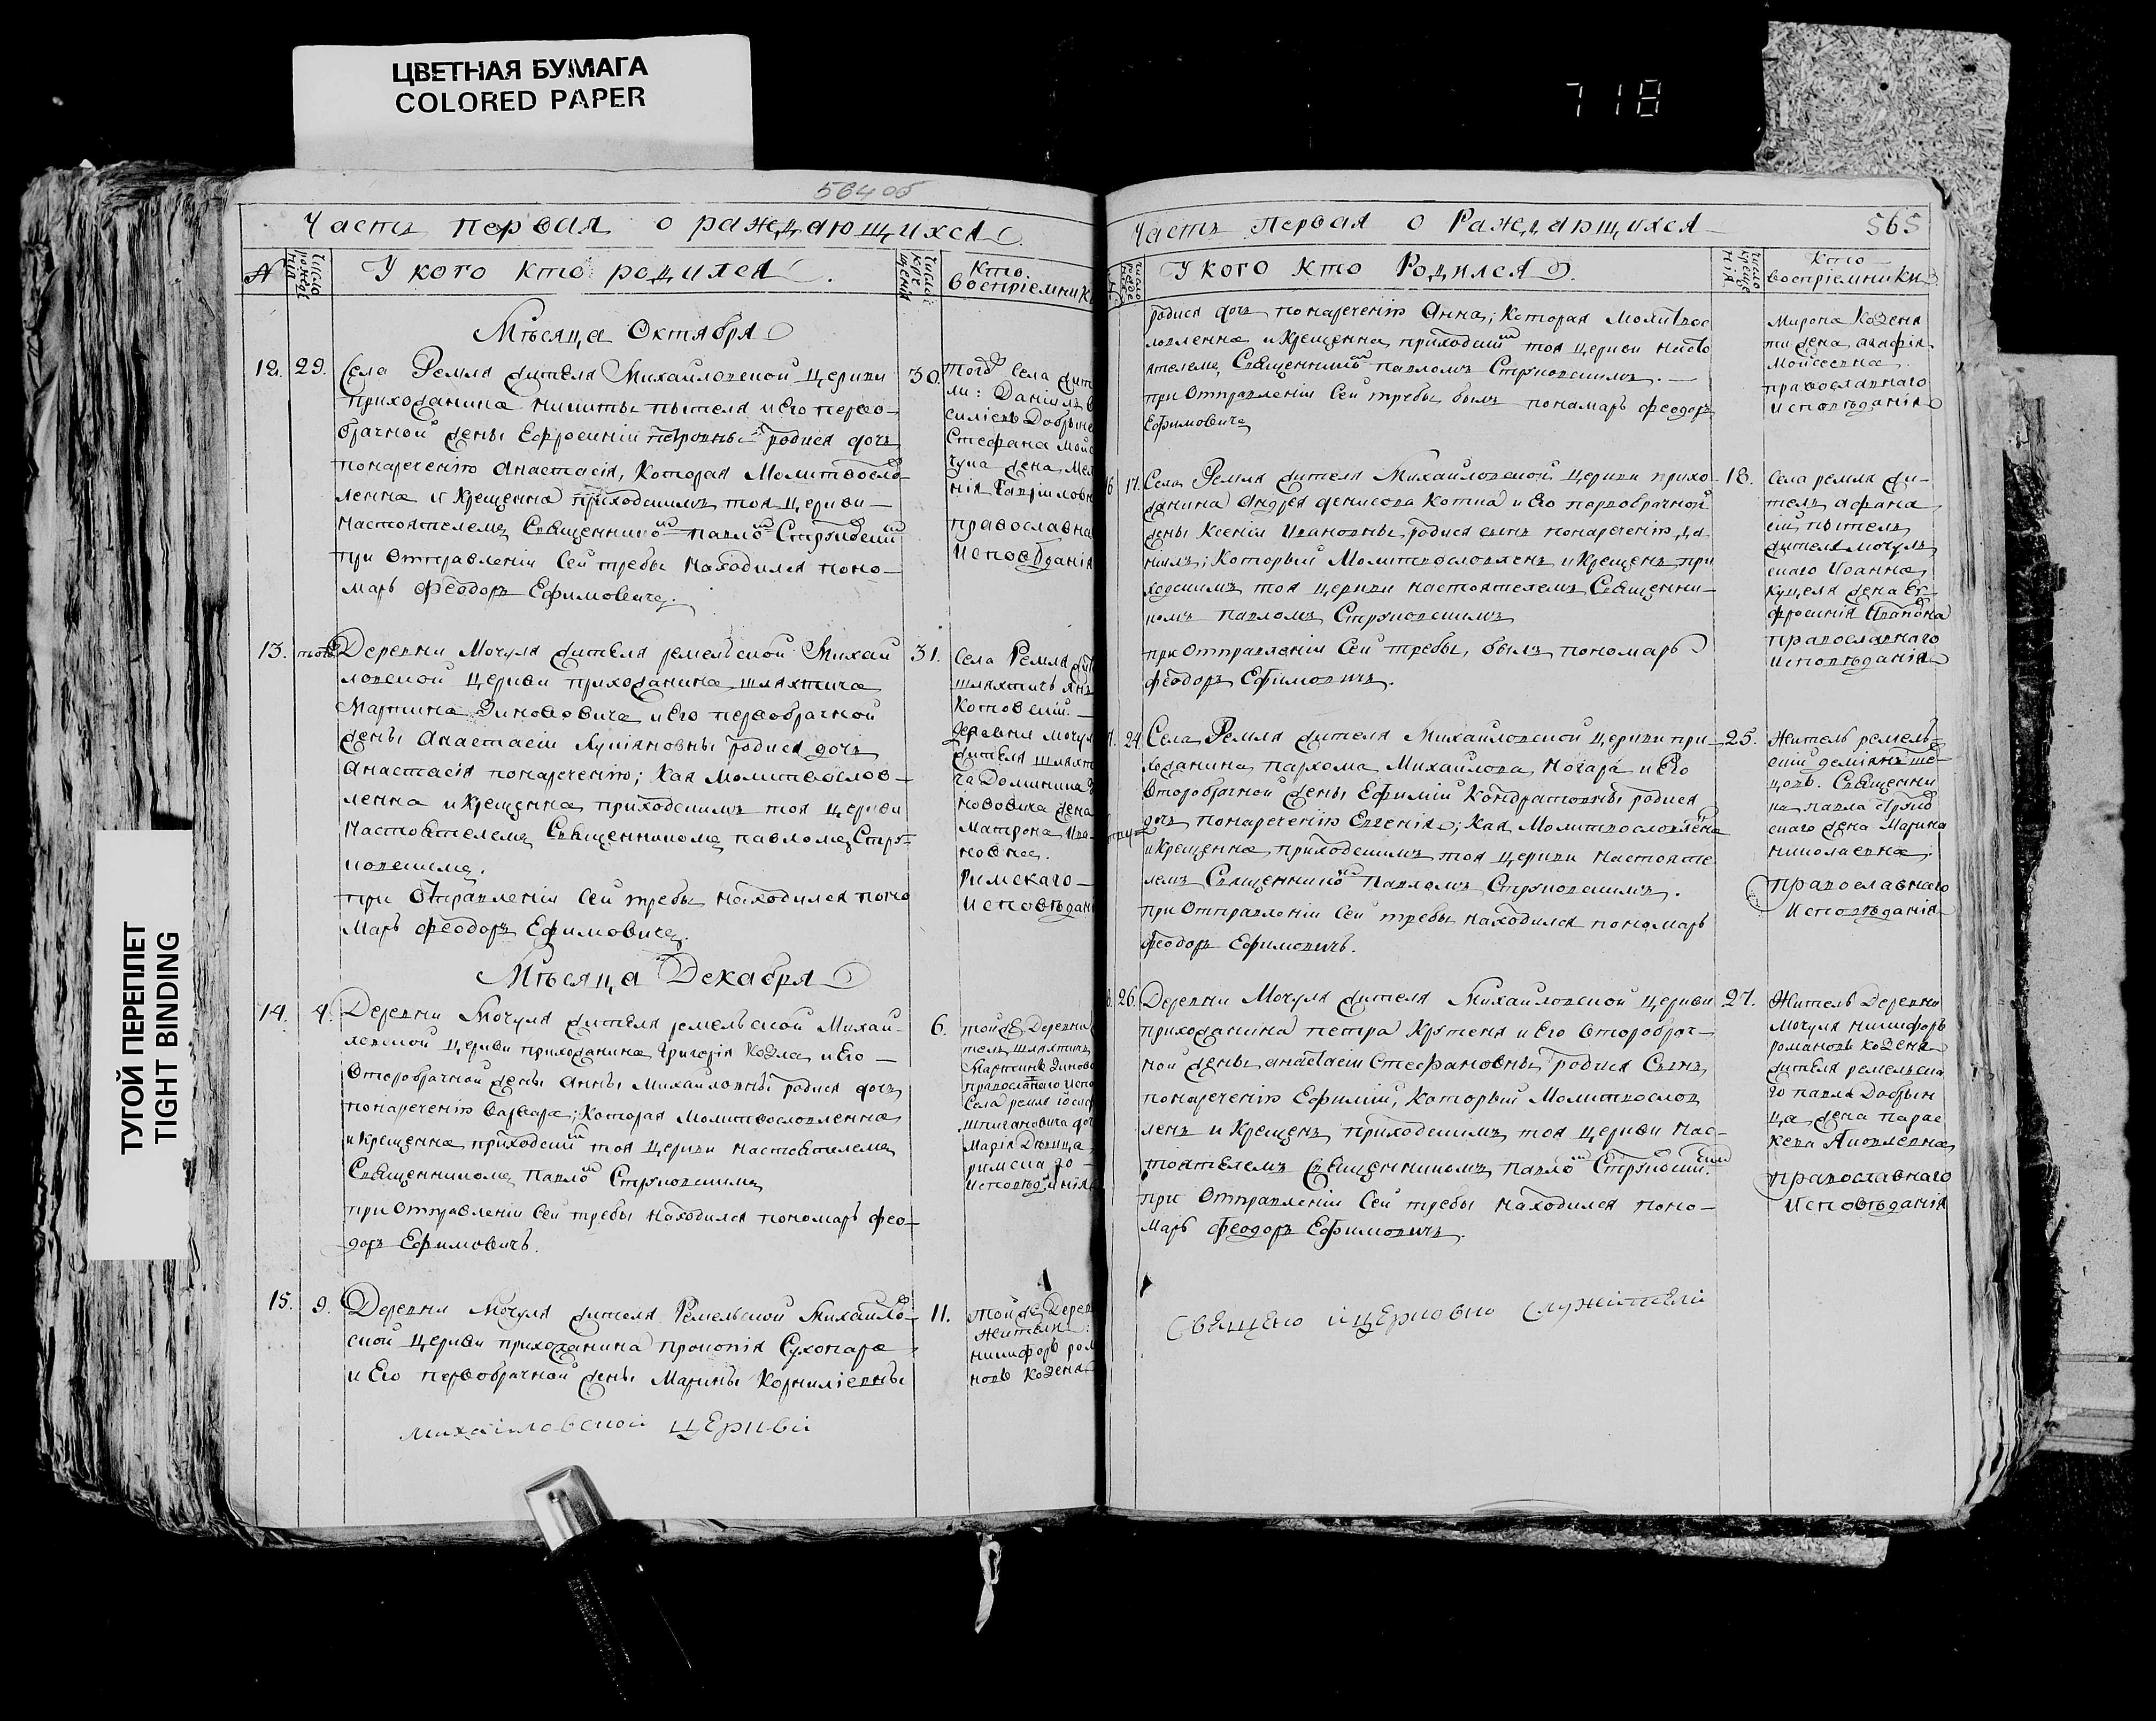 ЦВЕТНАЯ БУМАГА
COLORED PAPER
718
ТУГОЙ ПЕРЕПЛЕТ
TIGHT BINDING
564об
Часть первая о раждающихся
N
число рождения
У кого кто родился
число крещения
Кто воспріемники
Мѣсяца Октября
12. 29.
Села Ремля жителя Михайловской церкви
прихожанина Никиты Пытеля и его перво-
брачной жены Ефросиніи Петровны родися дочь
понареченію Анастасія, которая молитвосло-
вленна и крещенна приходскимъ тоя церкви
настоятелемъ священникомъ Павломъ
при отправленіи сей требы находился поно-
марь Феодоръ Ефимовичъ.
30.
тогожъ села жит
ли: Даніилъ В
силіевъ Добрын
Стефана Мой
жена Мел
нія Гавріиловн
православна
исповѣданія
13.
Деревни Мочуля жителя ремельской Михай
ловской церкви прихожанина шляхтича
Мартина Зиновича и его первобрачной
жены Анастасіи Лукіяновны родися дочь
Анастасія понареченію; кая молитвослов-
ленна и крещенна приходскимъ тоя церкви
настоятелемъ священникомъ Павломъ
при отправленіи сей требы находился поно
марь Феодоръ Ефимовичъ.
31.
Села Ремля жит
шляхтичь Янъ
Котовскій.
деревни Мочул
жителя шляхт
ча Доминика
жена
Матрона Ива
новна.
Римскаго
исповѣдан
Мѣсяца Декабря
14. 4.
Деревни Мочуля жителя ремельской Михай-
ловской церкви прихожанина Григорія Козла и его
второбрачной жены Анны Михайловны родися дочь
понареченію Варвара; которая молитвословленна
и крещенна приходскимъ тоя церкви настоятелемъ
священникомъ Павломъ
при отправленіи сей требы находился пономарь Фео-
доръ Ефимовичъ.
6.
той жъ деревни
тель шляхтичь
Мартинъ Зинов
православнаго испо
Села ремля
Марія дѣвица
римскаго
исповѣданія
15. 9.
Деревни Мочуля жителя Ремельской Михайлов-
ской церкви прихожанина Прокопія Сухопара
и его первобрачной жены Марины Корниліевны
11.
той жъ дерев
жители:
никифоръ ром
новъ Козена
михайловской церкви
Часть первая о раждающихся
565
У кого кто родился
число крещенія
Кто воспріемники
родися дочь понареченію Анна; которая молитвос
ловленна и крещенна приходскимъ тоя церкви насто
ятелемъ священникомъ Павломъ
при отправленіи сей требы былъ пономарь Феодоръ
Ефимовичъ
Мирона Козена
жена
Мойсеевна.
православнаго
исповѣданія
17.
Села Ремля жителя Михайловской церкви прихо-
жанина Андрея Денисова Котка и его первобрачной
жены Ксеніи Ивановны родися сынъ понареченію Да
ніилъ; который молитвословленъ и крещенъ при
ходскимъ тоя церкви настоятелемъ священни-
комъ Павломъ
при отправленіи сей требы, былъ пономарь
Феодоръ Ефимовичъ.
18.
Села ремля жи-
тель Афана
сій Пытель
жителя мочуль
скаго Иоанна
жена Ев-
фросинія Ивановна
православнаго
исповѣданія
24.
Села Ремля жителя Михайловской церкви при-
хожанина Пархома Михайлова Ногара и его
второбрачной жены Ефиміи Кондратовны родися
дочь понареченію Евгенія; кая молитвословленна
и крещенна приходскимъ тоя церкви настояте
лемъ священникомъ Павломъ
при отправленіи сей требы находился пономарь
Феодоръ Ефимовичъ.
25.
Житель ремель-
скій Деміянъ Ше-
цовъ. Священни
ка Павла
скаго жена Марина
николаевна.
православнаго
исповѣданія
26.
Деревни Мочуля жителя Михайловской церкви
прихожанина Петра Крутеня и его второбрач-
ной жены Анастасіи Стефановны родися сынъ
понареченію Ефимій, который молитвослов
ленъ и крещенъ приходскимъ тоя церкви нас-
тоятелемъ священникомъ Павломъ
при отправленіи сей требы находился поно-
марь Феодоръ Ефимовичъ.
27.
Житель деревни
Мочуля никифоръ
романовъ Козена
жителя ремельска
го Павла Добрын
ца жена Парас
кева Яковлевна
православнаго
исповѣданія
Священо іцерковно служители